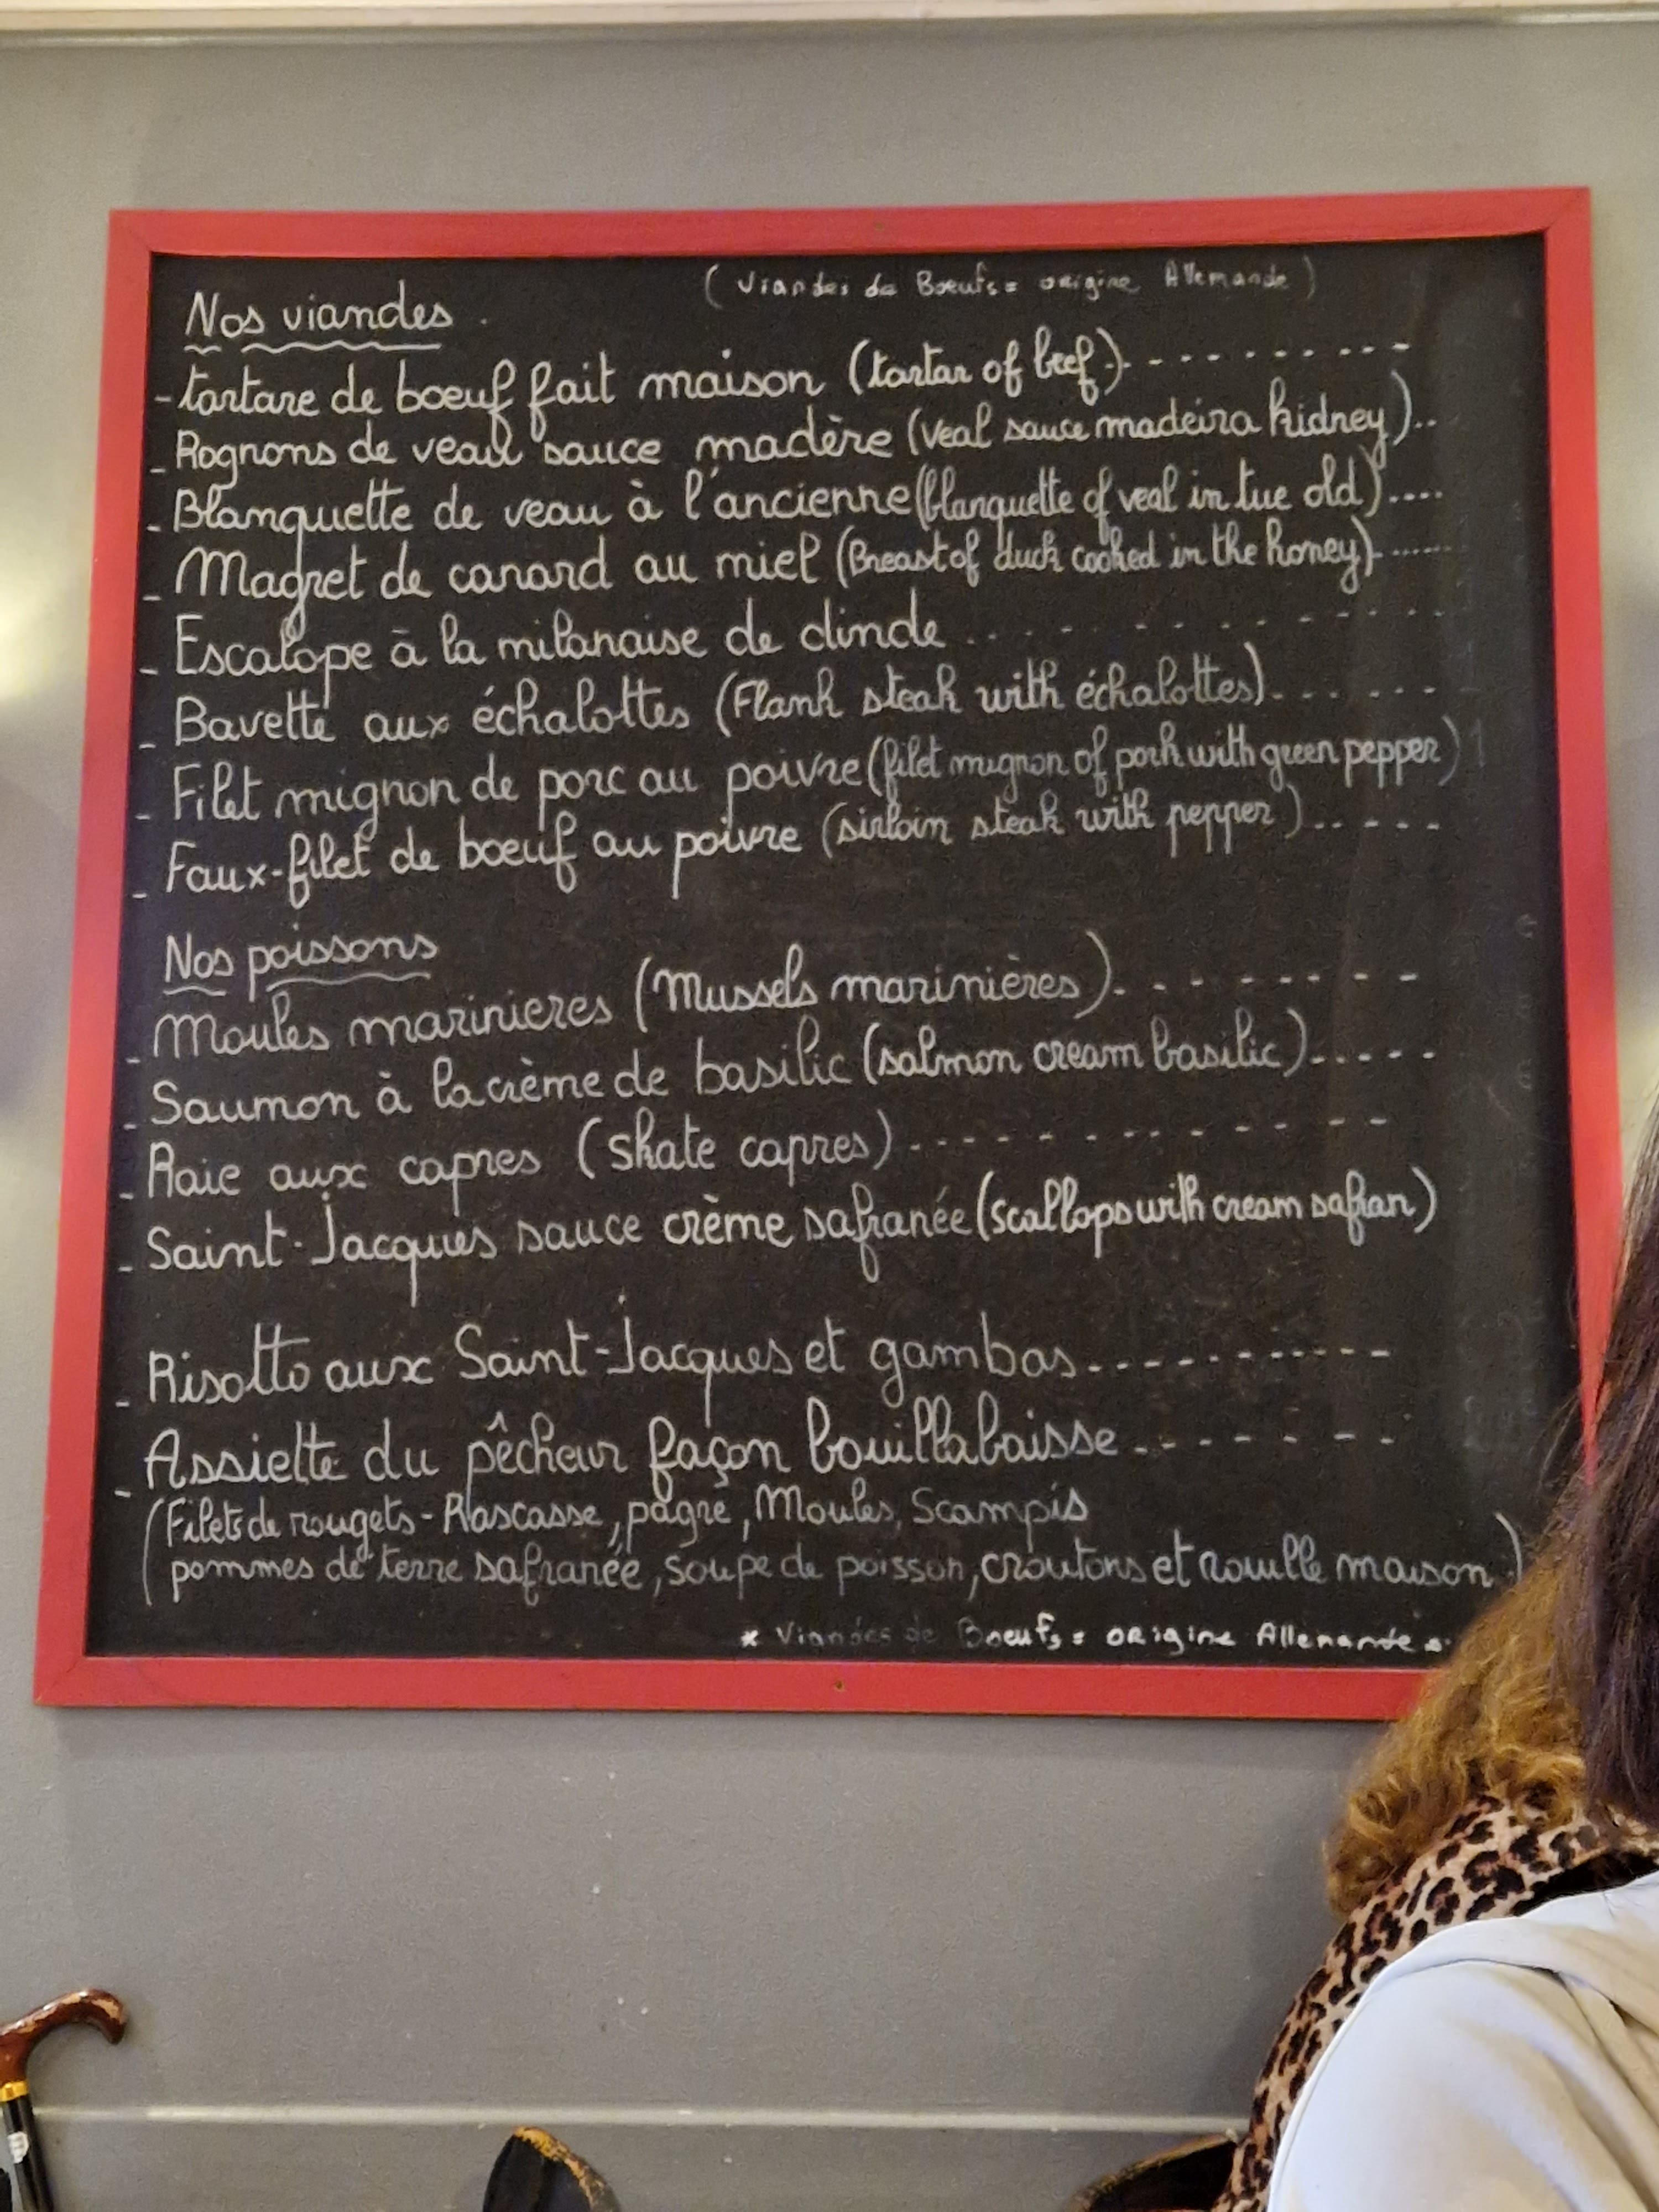 Nos viandes.
(Viandes de Boeufs = origine Allemande)
- tartare de boeuf fait maison (tartar of beef)- - - - - - - - - -
- Rognons de veau sauce madère (veal sauce madeira kidney)..
- Blanquette de veau à l'ancienne (blanquette of veal in tue old)....
- Magret de canard au miel (Breast of duck cooked in the honey)......
- Escalope à la milanaise de dinde . . . . . . . . . . . .
- Bavette aux échalottes (Flank steak with échalottes)- - - - - -
- Filet mignon de porc au poivre (filet mignon of pork with green pepper)
- Faux-filet de boeuf au poivre (sirloin steak with pepper)..- - -
Nos poissons
- Moules marinieres (Mussels marinières)- - - - - - - -
- Saumon à la crème de basilic (salmon cream basilic)- - - - -
- Raie aux capres (skate capres)- - - - - - - - - - - -
- Saint-Jacques sauce crème safranée (scallops with cream safran)
- Risotto aux Saint-Jacques et gambas- - - - - - - - - -
- Assiette du pêcheur façon bouillabaisse- - - - - - -
(Filets de rougets - Rascasse, pagre, Moules, Scampis
pommes de terre safranée, soupe de poisson, croutons et rouille maison.)
* Viandes de Boeufs = origine Allemande